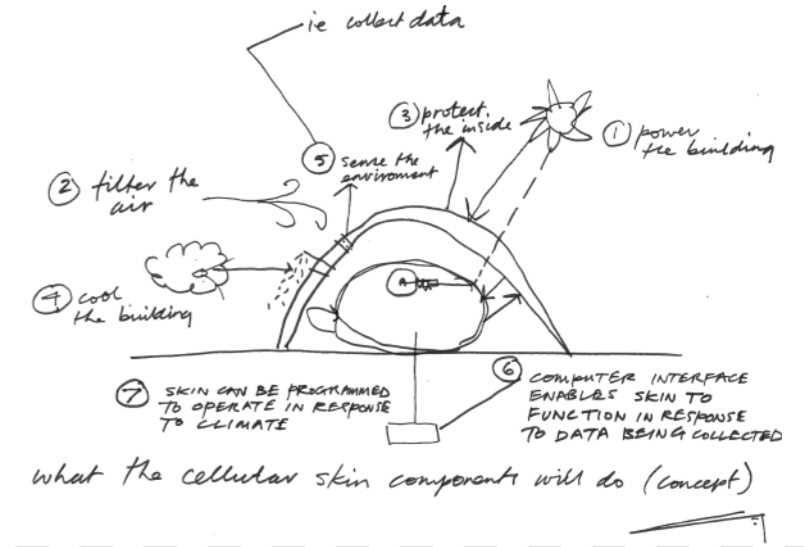 ie collect data
① power
the building
③ protect
the inside
⑤ sense the
enviroment
② filter the
air
④ cool
the building
A
⑦ SKIN CAN BE PROGRAMMED
TO OPERATE IN RESPONSE
TO CLIMATE
⑥ COMPUTER INTERFACE
ENABLES SKIN TO
FUNCTION IN RESPONSE
TO DATA BEING COLLECTED
what the cellular skin components will do (concept)